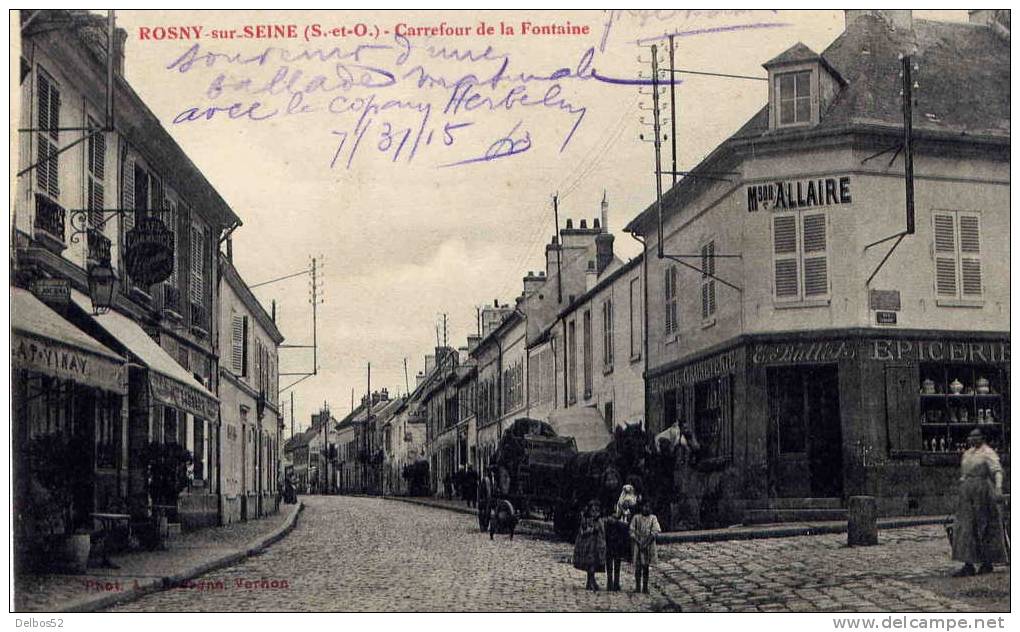 ROSNY-sur-SEINE (S.-et-O.) - Carrefour de la Fontaine
souvenir d'une
ballade matinale
avec le copain
7/31/15
Mson ALLAIRE
AT-VINAY
E. Bullot
EPICERIE
Phot. A. Vernon
Delbos52
www.delcampe.net